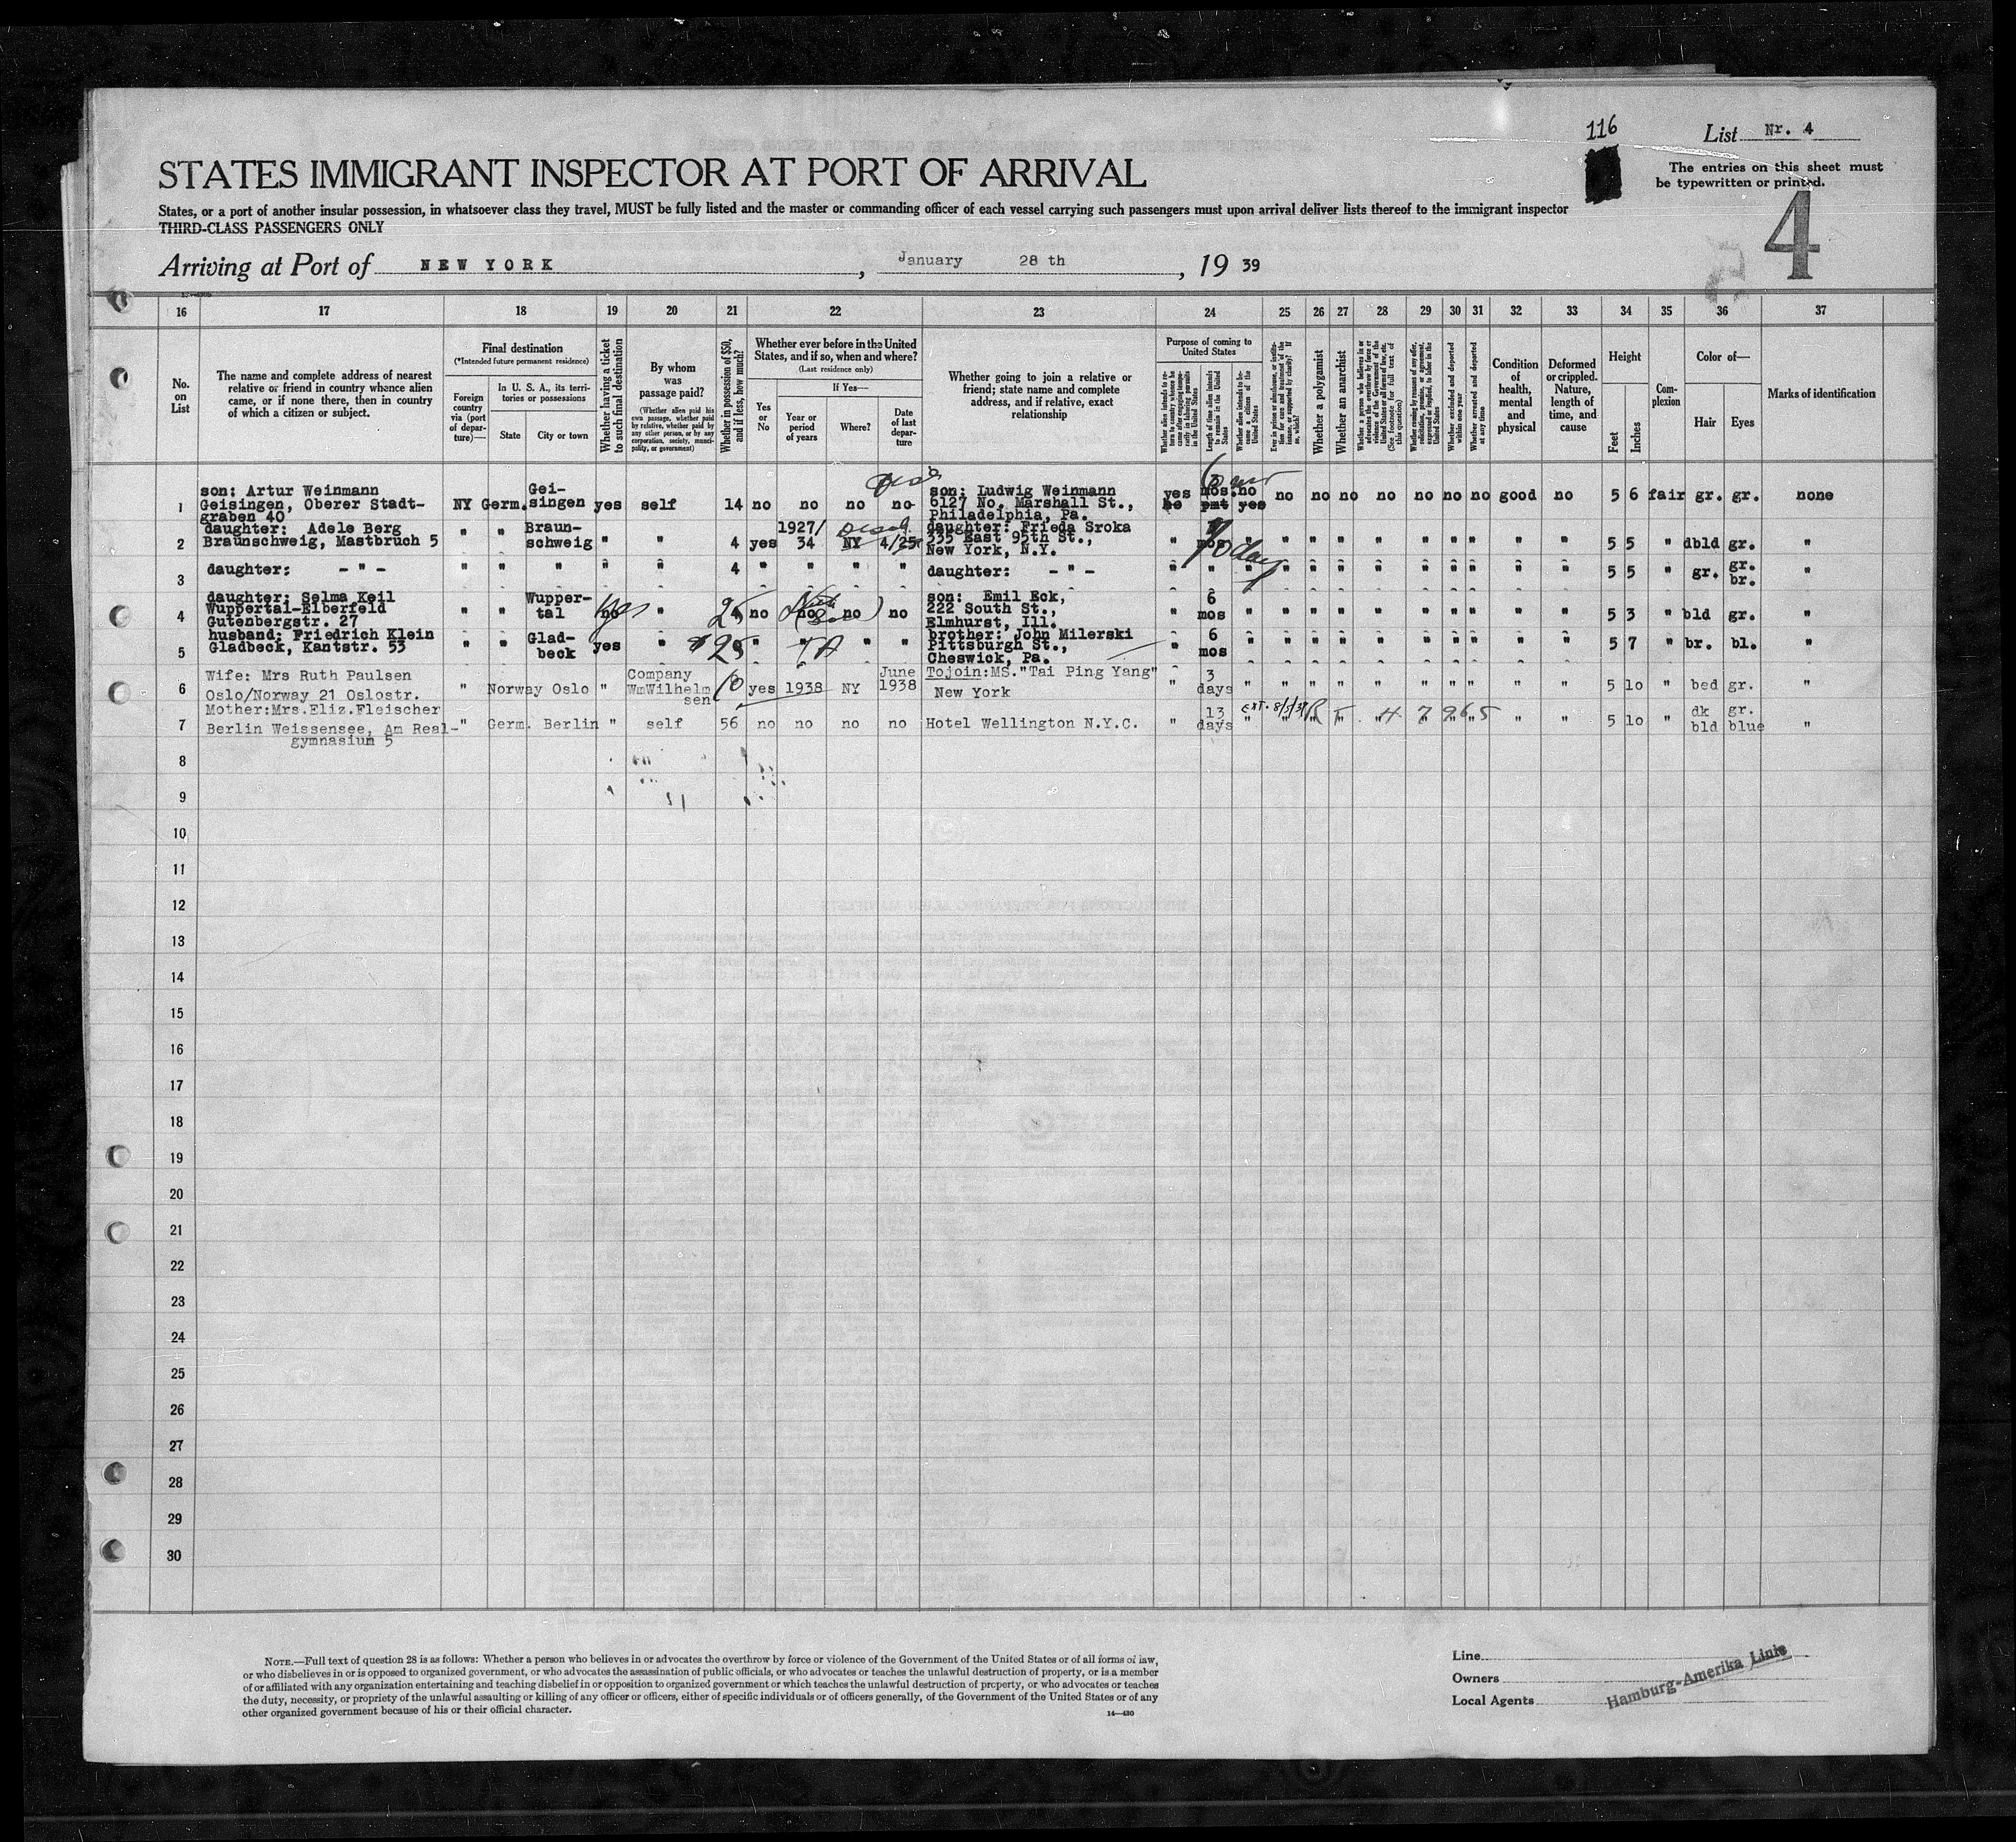 116
List Nr. 4
STATES IMMIGRANT INSPECTOR AT PORT OF ARRIVAL
The entries on this sheet must
be typewritten or printed.
States, or a port of another insular possession, in whatsoever class they travel, MUST be fully listed and the master or commanding officer of each vessel carrying such passengers must upon arrival deliver lists thereof to the immigrant inspector
THIRD-CLASS PASSENGERS ONLY
4
Arriving at Port of NEW YORK, January 28 th, 19 39
16 17 18 19 20 21 22 23 24 25 26 27 28 29 30 31 32 33 34 35 36 37
No. on List
The name and complete address of nearest
relative or friend in country whence alien
came, or if none there, then in country
of which a citizen or subject.
Final destination
(*Intended future permanent residence)
Foreign country via (port of departure)—
In U. S. A., its territories or possessions
State
City or town
Whether having a ticket to such final destination
By whom was passage paid?
(Whether alien paid his own passage, whether paid by relative, whether paid by any other person, or by any corporation, society, municipality, or government)
Whether in possession of $50, and if less, how much?
Whether ever before in the United
States, and if so, when and where?
(Last residence only)
Yes or No
If Yes—
Year or period of years
Where?
Date of last departure
Whether going to join a relative or
friend; state name and complete
address, and if relative, exact
relationship
Purpose of coming to
United States
Length of time alien intends to remain in the United States
Whether alien intends to become a citizen of the United States
Whether a polygamist
Whether an anarchist
(See footnote for full text of this question)
Whether excluded and deported within one year
Whether arrested and deported at any time
Condition of health, mental and physical
Deformed or crippled. Nature, length of time, and cause
Height
Feet
Inches
Complexion
Color of—
Hair
Eyes
Marks of identification
1 son: Artur Weinmann
Geisingen, Oberer Stadt-
graben 40
NY Germ. Gei-
singen yes self 14 no no no no
son: Ludwig Weinmann
6127 No. Marshall St.,
Philadelphia, Pa.
yes mos. no no no no no no no no good no 5 6 fair gr. gr. none
no pmt yes
2 daughter: Adele Berg
Braunschweig, Mastbruch 5
" " Braun-
schweig " " 4 yes 1927/
34 NY 4/25
daughter: Frieda Sroka
335 East 95th St.,
New York, N.Y.
" mos " " " " " " " " " " 5 5 " dbld gr. "
3 daughter: - " -
" " " " " 4 " " " "
daughter: - " -
" " " " " " " " " " " " 5 5 " gr. gr.
br. "
4 daughter: Selma Keil
Wuppertal-Elberfeld
Gutenbergstr. 27
" " Wupper-
tal no yes " 25 no no no no
son: Emil Eck,
222 South St.,
Elmhurst, Ill.
" 6
mos " " " " " " " " " " 5 3 " bld gr. "
5 husband: Friedrich Klein
Gladbeck, Kantstr. 53
" " Glad-
beck yes " $25 " " "
brother: John Milerski
Pittsburgh St.,
Cheswick, Pa.
" 6
mos " " " " " " " " " " 5 7 " br. bl. "
6 Wife: Mrs Ruth Paulsen
Oslo/Norway 21 Oslostr.
" Norway Oslo " Company
WmWilhelm
sen 10 yes 1938 NY June
1938
Tojoin:MS."Tai Ping Yang"
New York
" 3
days " " " " " " " " " " 5 10 " bed gr. "
7 Mother:Mrs.Eliz.Fleischer
Berlin Weissensee, Am Real-
gymnasium 5
" Germ. Berlin " self 56 no no no no
Hotel Wellington N.Y.C.
" 13
days " " " " " " " " " " 5 10 " dk
bld gr.
blue "
EXT. 8/5/39
8
9
10
11
12
13
14
15
16
17
18
19
20
21
22
23
24
25
26
27
28
29
30
NOTE.—Full text of question 28 is as follows: Whether a person who believes in or advocates the overthrow by force or violence of the Government of the United States or of all forms of law,
or who disbelieves in or is opposed to organized government, or who advocates the assassination of public officials, or who advocates or teaches the unlawful destruction of property, or is a member
of or affiliated with any organization entertaining and teaching disbelief in or opposition to organized government or which teaches the unlawful destruction of property, or who advocates or teaches
the duty, necessity, or propriety of the unlawful assaulting or killing of any officer or officers, either of specific individuals or of officers generally, of the Government of the United States or of any
other organized government because of his or their official character.
14—430
Line
Owners
Local Agents
Hamburg-Amerika Linie